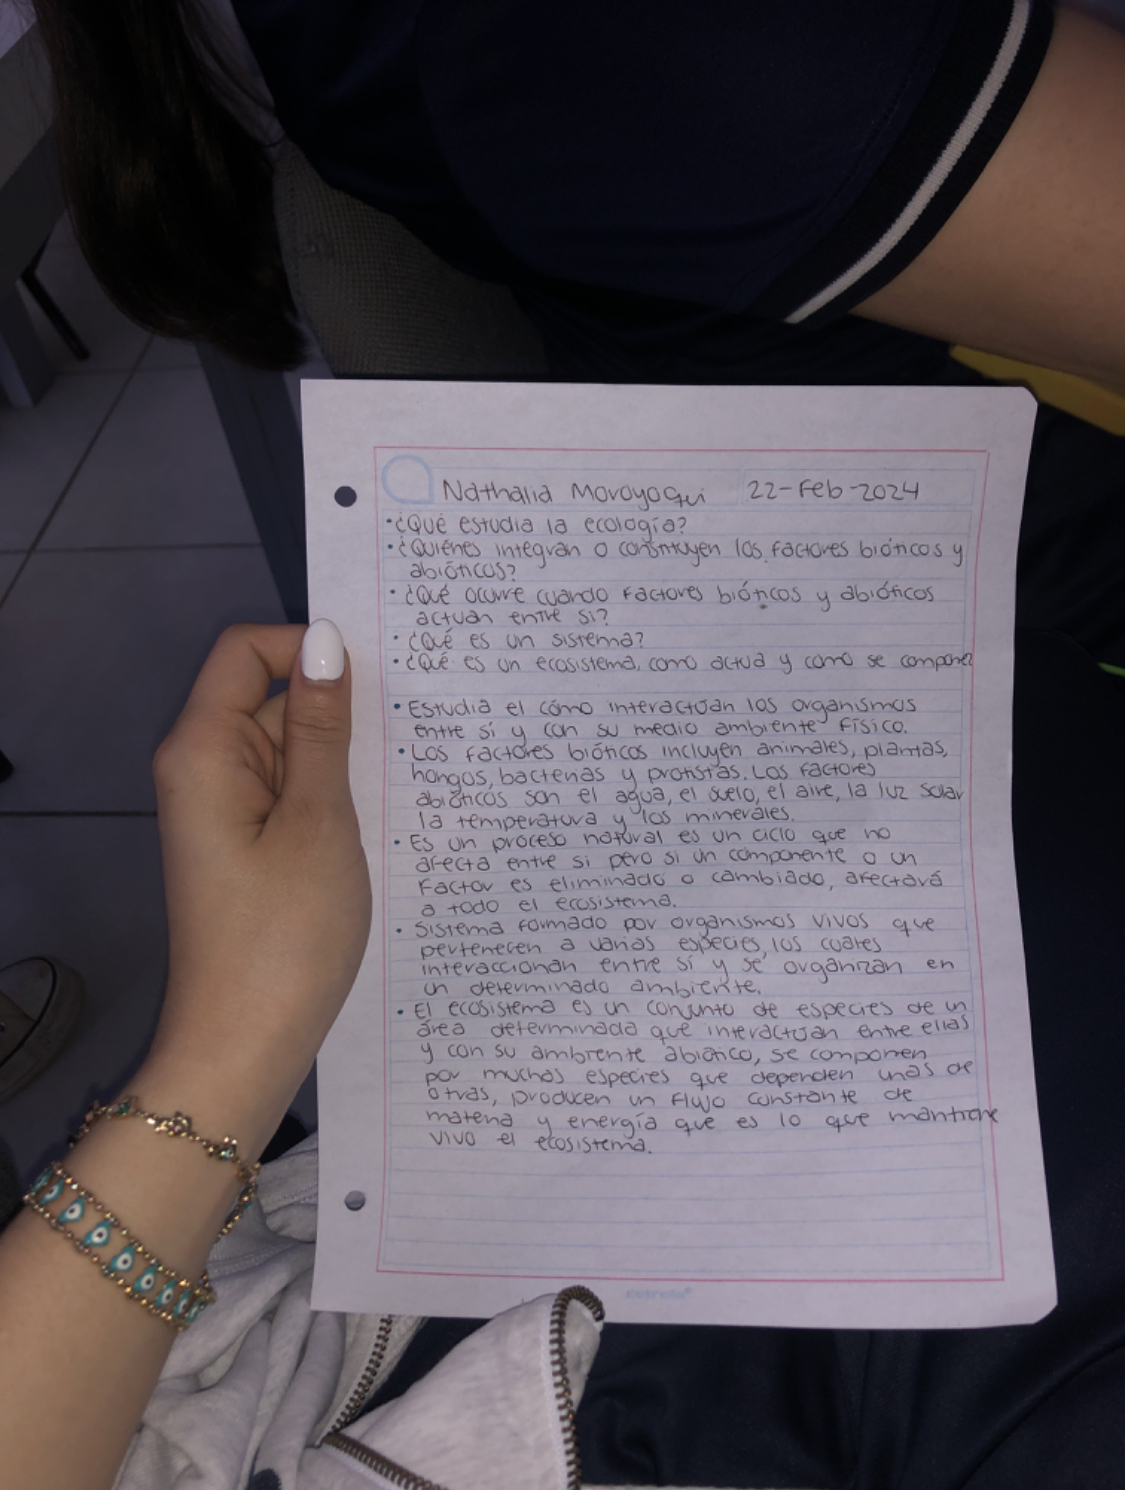 Nathalia Moroyoqui 22-Feb-2024
• ¿Qué estudia la ecología?
• ¿Quiénes integran o constituyen los factores bióticos y
abióticos?
• ¿Qué ocurre cuando factores bióticos y abióticos
actúan entre si?
• ¿Qué es un sistema?
• ¿Qué es un ecosistema, como actua y como se compone?
• Estudia el cómo interactúan los organismos
entre sí y con su medio ambiente físico.
• Los factores bióticos incluyen animales, plantas,
hongos, bacterias y protistas. Los factores
abióticos son el agua, el suelo, el aire, la luz solar
la temperatura y los minerales.
• Es un proceso natural es un ciclo que no
afecta entre si pero si un componente o un
factor es eliminado o cambiado, afectará
a todo el ecosistema.
• Sistema formado por organismos vivos que
pertenecen a varias especies, los cuales
interaccionan entre sí y se organizan en
un determinado ambiente.
• El ecosistema es un conjunto de especies de un
área determinada que interactúan entre ellas
y con su ambiente abiótico, se componen
por muchas especies que dependen unas de
otras, producen un flujo constante de
materia y energía que es lo que mantiene
vivo el ecosistema.